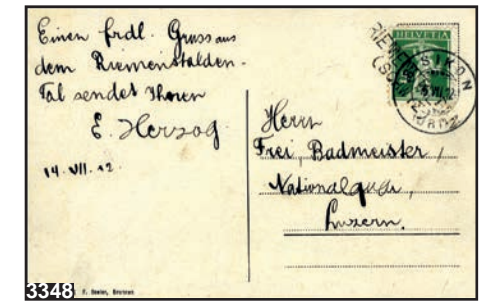 Einen frdl. Gruss aus
dem Riemenstalden-
Tal sendet Ihnen
E. Herzog
14. VII. 12
HELVETIA
RIEMEN
SISIKON
Herrn
Frei, Badmeister,
Nationalquai,
Luzern.
3348
Brunnen